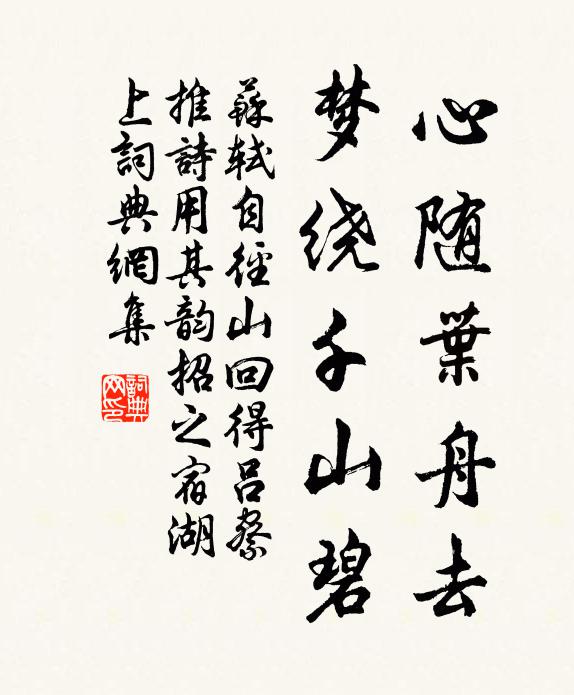 心随葉舟去
梦绕千山碧
蘇轼自徑山回得吕察
推詩用其韵招之宿湖
上詞典網集
詞典网印